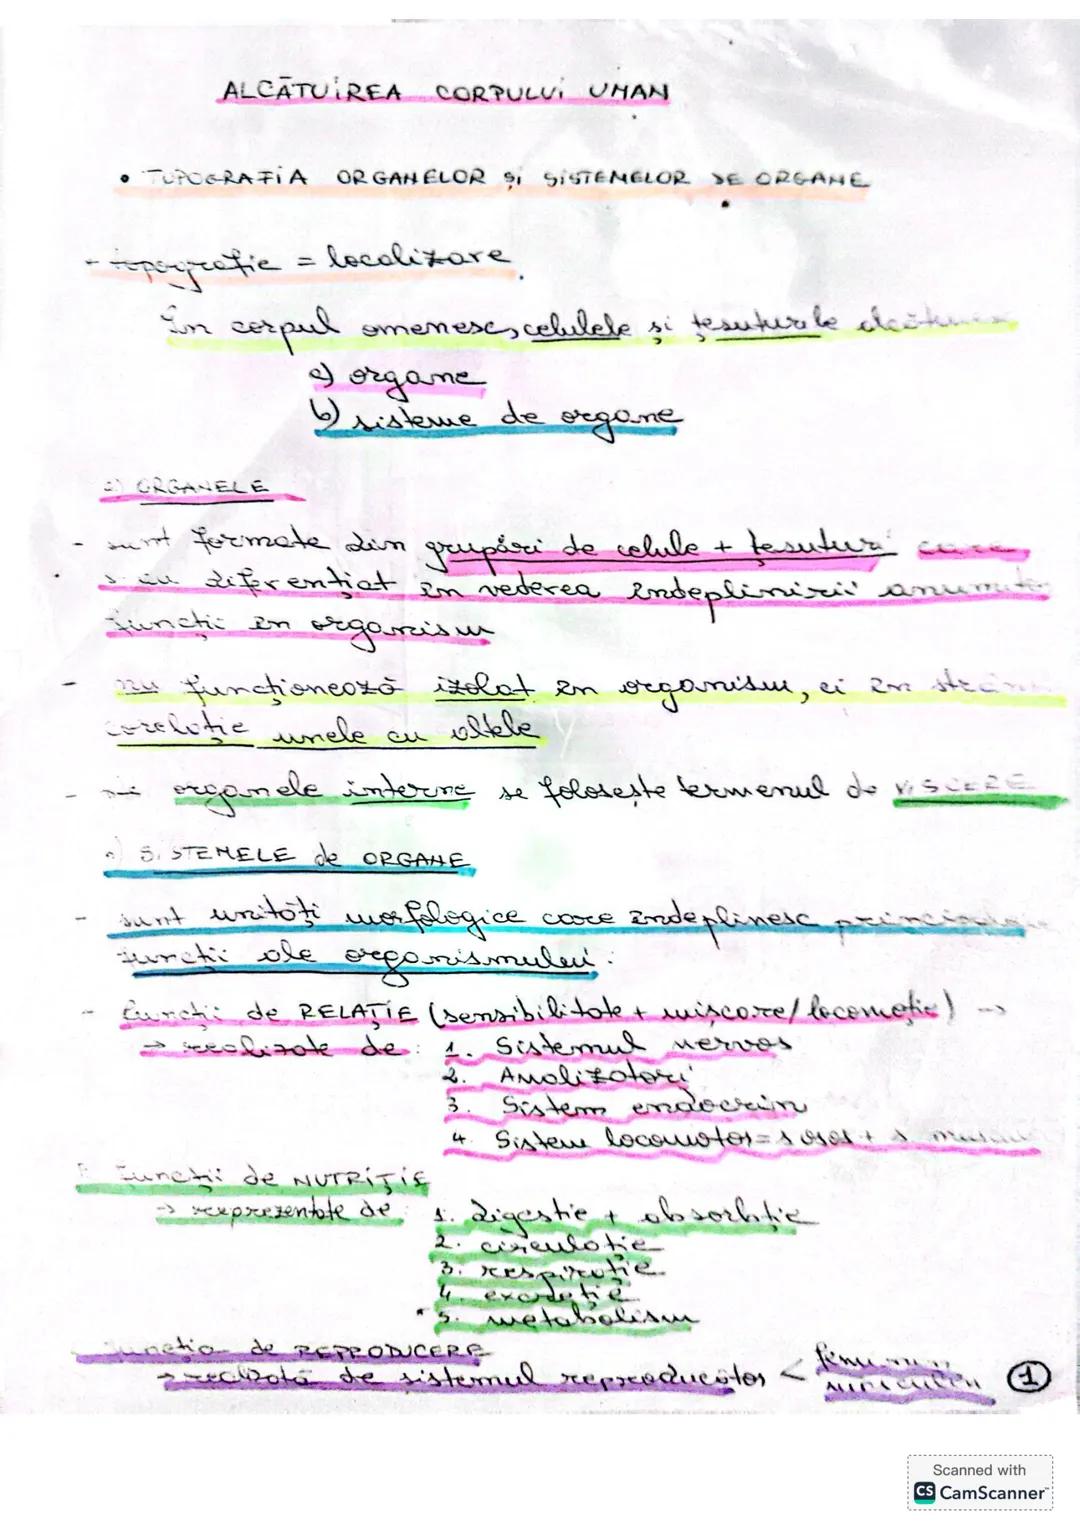 ALCĂTUIREA CORPULUI UMAN
• TOPOGRAFIA ORGANELOR și SISTEMELOR DE ORGANE
- topografie = localizare
În corpul omenesc, celulele și țesuturile alcătuiesc
a) organe
b) sisteme de organe
a) ORGANELE
- sunt formate din grupări de celule + țesuturi care
s-au diferențiat în vederea îndeplinirii anumitor
funcții în organism
- nu funcționează izolat în organism, ci în strânsă
corelație unele cu altele
- organele interne se folosește termenul de VISCERE
b) SISTEMELE de ORGANE
- sunt unități morfologice care îndeplinesc principalele
funcții ale organismului:
- Funcții de RELAȚIE (sensibilitate + mișcare/locomoție) ->
→ realizate de: 1. Sistemul nervos
2. Analizatori
3. Sistem endocrin
4. Sistem locomotor = s osos + s muscular
Funcții de NUTRIȚIE
→ reprezentate de: 1. digestie + absorbție
2. circulație
3. respirație
4. excreție
5. metabolism
Funcția de REPRODUCERE
→ realizată de sistemul reproducător < feminin
masculin
1
Scanned with
CS CamScanner